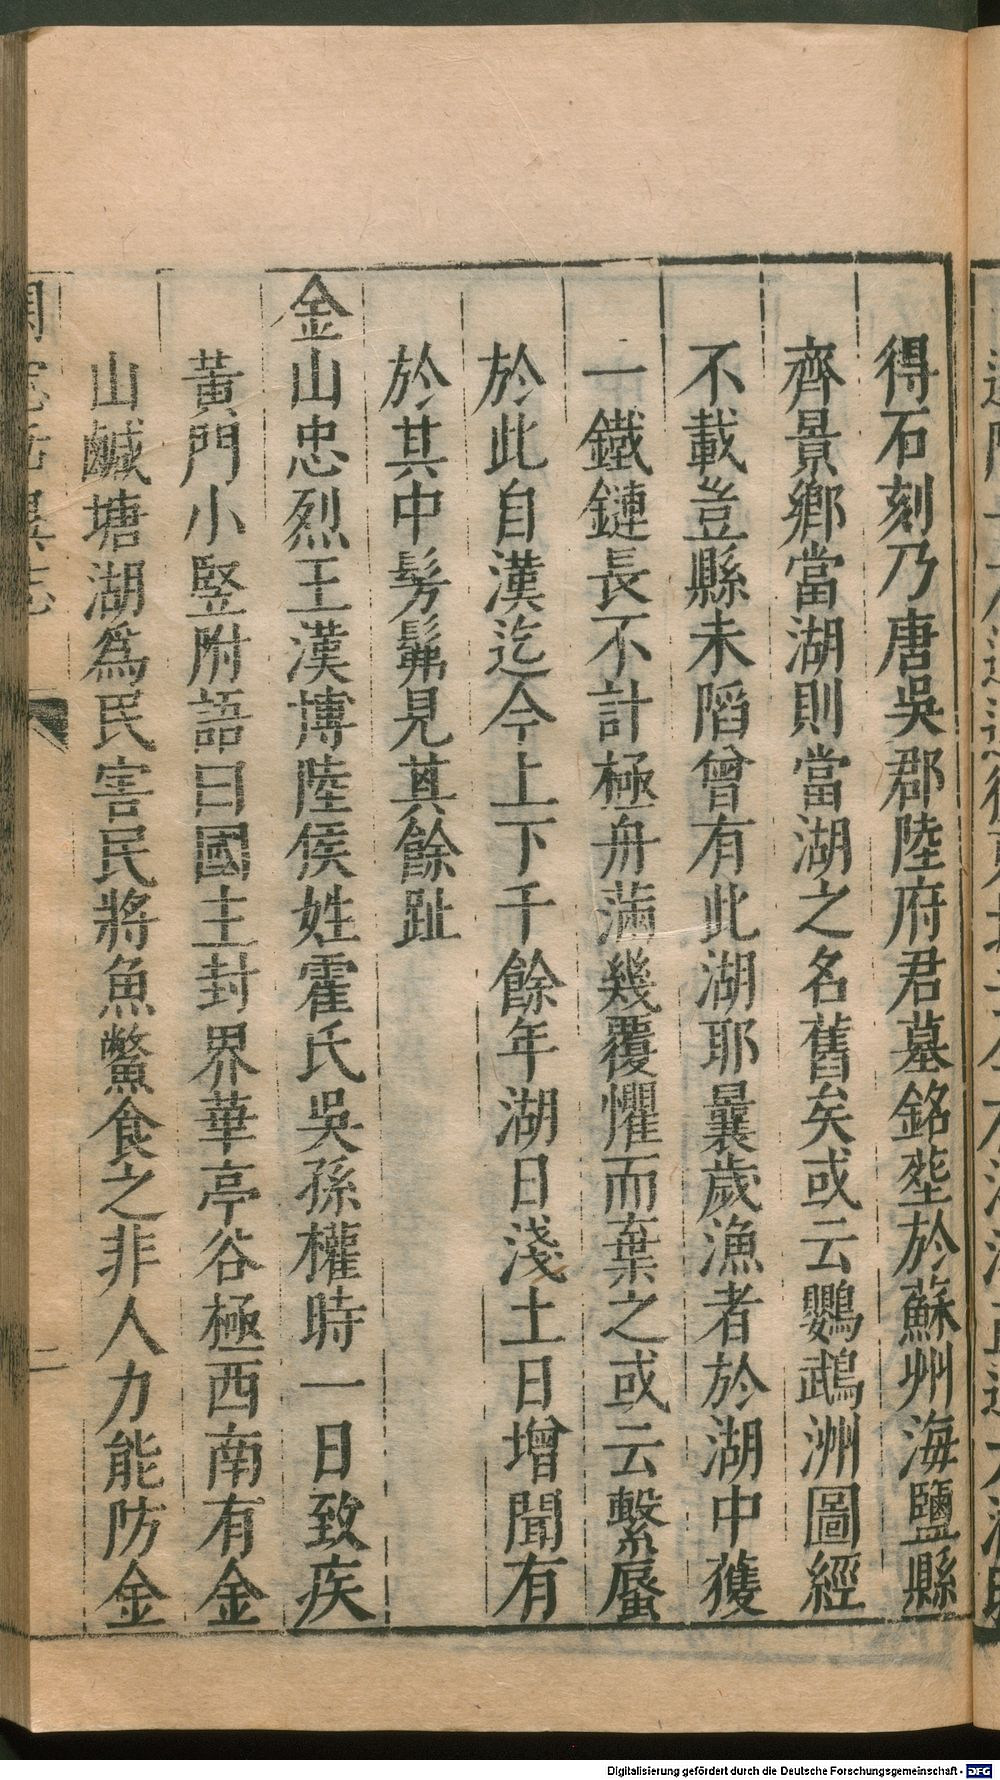 得石刻乃唐吳郡陸府君墓銘塟於蘇州海鹽縣
齊景鄉當湖則當湖之名舊矣或云鸚鵡洲圖經
不載豈縣未陷曾有此湖耶曩歲漁者於湖中獲
一鐵鏈長不計極舟滿幾覆懼而棄之或云繫蜃
於此自漢迄今上下千餘年湖日淺土日增聞有
於其中髣髴見其餘趾
金山忠烈王漢博陸侯姓霍氏吳孫權時一日致疾
黃門小竪附語曰國主封界華亭谷極西南有金
山鹹塘湖為民害民將魚鱉食之非人力能防金
二
Digitalisierung gefördert durch die Deutsche Forschungsgemeinschaft - DFG